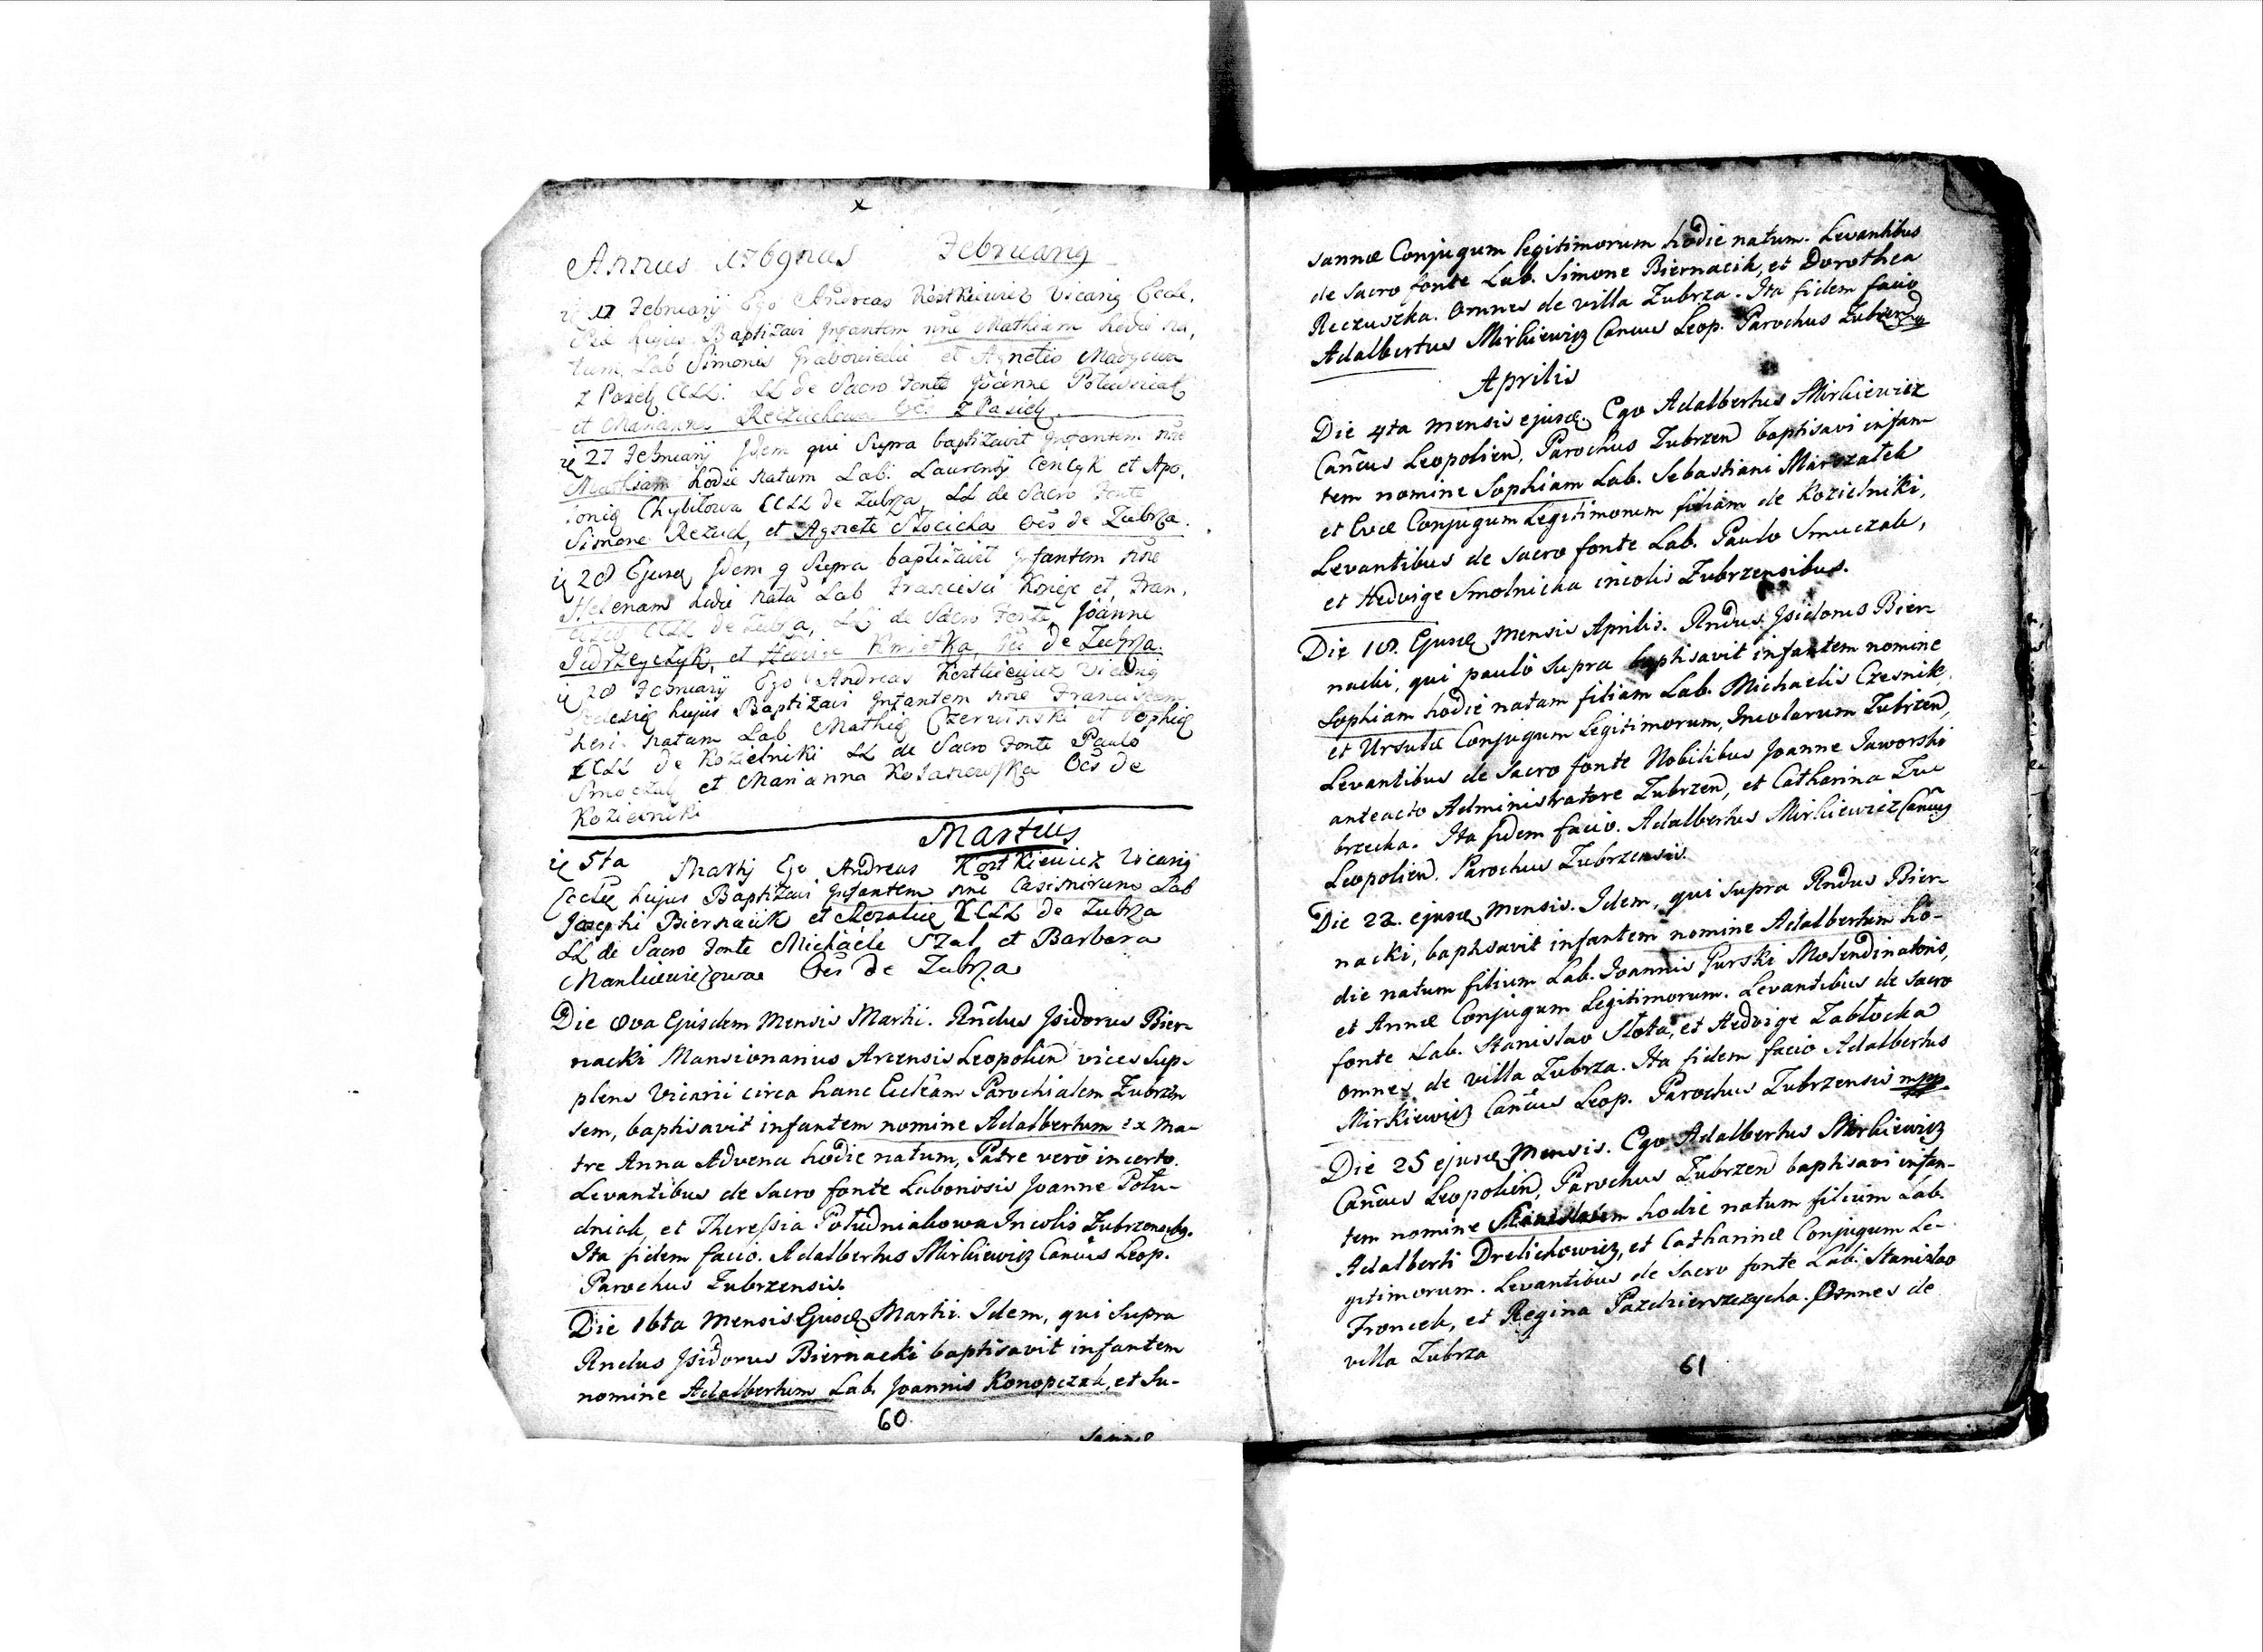 x
Annus 1769nus Februarig
17 Februarij Ego Andreas Kostkiewicz Vicarig Eccle,
siæ hujus Baptizavi Infantem nne Mathiam hodie na,
tum, Lab Simonis Grabowiecki et Agnetis
z Pasiek CCLL: LL de Sacro Fonte Joanne
et Marianna z Pasiek
27 Februarij Idem qui Supra baptizavit Infantem nne
Mathiam hodie natum Lab: Laurentij Cencyk et Apo,
lonię Chybilowa CCLL de Zubrza, LL de Sacro Fonte
Simone Rezuch, et Agnete Slocicka Oēs de Zubrza.
28 Ejusdę Idem q Supra baptizavit Infantem nne
Helenam hodie nata Lab Francisci et Fran,
CCLL de Zubrza, LL de Sacro Fonte Joanne
Jędrzeyczyk, et Kmietka, Oēs de Zubrza.
28 Februarij Ego Andreas Kostkiewicz Vicarig
Ecclesię hujus Baptizavi Infantem nne Franciscam
heri natam Lab Mathię Czerwinski et Sophię
CCLL de Kozielniki LL de Sacro Fonte Paulo
Smoczak et Marianna Oēs de
Kozielniki
Martius
5ta Martij Ego Andreas Kostkiewicz Vicarig
Eccleę hujus Baptizavi Infantem nne Casimirum Lab
Josephi Biernacik et Rozalię CCLL de Zubrza
LL de Sacro Fonte Michaele Szal et Barbara
Oēs de Zubrza
Die 8va Ejusdem Mensis Martii. Rndus Isidorus Bier-
nacki Mansionarius Arcensis Leopolien vices sup-
plens Vicarii circa hanc Ecclēam Parochialem Zubrzen
sem, baptisavit infantem nomine Adalbertum ex ma-
tre Anna Advena hodie natum, Patre verò incerto.
Levantibus de sacro fonte Laboriosis Joanne Połu-
dniak, et Theressia Południakowa Incolis Zubrzensibg.
Ita fidem facio. Adalbertus Mirkiewicz Cancus Leop.
Parochus Zubrzensis.
Die 16ta Mensis Ejusdę Martii. Idem, qui supra
Rndus Isidorus Biernacki baptisavit infantem
nomine Adalbertum Lab. Joannis Konopczak, et Su-
60
sannæ
sannæ Conjugum legitimorum hodie natum. Levantibus
de sacro fonte Lab. Simone Biernacik, et Dorothea
Reczuszka. Omnes de villa Zubrza. Ita fidem facio
Adalbertus Mirkiewicz Cancus Leop. Parochus Zubrzensis
Aprilis
Die 4ta mensis ejusdę. Ego Adalbertus Mirkiewicz
Cancus Leopolien, Parochus Zubrzen baptisavi infan
tem nomine Sophiam Lab. Sebastiani Marszałek
et Evæ Conjugum Legitimorum filiam de Kozielniki,
Levantibus de sacro fonte Lab. Paulo Smuczak,
et Hedvige Smolnicka incolis Zubrzensibus.
Die 18. Ejusdę Mensis Aprilis. Rndus Isidorus Bier
nacki, qui paulò supra baptisavit infantem nomine
Sophiam hodie natam filiam Lab. Michaelis Czesnik,
et Ursulæ Conjugum Legitimorum, Incolarum Zubrzen,
Levantibus de sacro fonte Nobilibus Joanne Jaworski
anteacto Administratore Zubrzen, et Catharina Zu
brzecka. Ita fidem facio. Adalbertus Mirkiewicz Cancus
Leopolien. Parochus Zubrzensis.
Die 22. ejusdę Mensis. Idem, qui supra Rndus Bier
nacki, baptisavit infantem nomine Adalbertum ho-
die natum filium Lab. Joannis Gurski Molendinatoris,
et Annæ Conjugum Legitimorum. Levantibus de sacro
fonte Lab. Stanislao Słota, et Hedvige Zabłocka
omnes de villa Zubrza. Ita fidem facio Adalbertus
Mirkiewicz Cancus Leop. Parochus Zubrzensis mpp.
Die 25 ejusdę Mensis. Ego Adalbertus Mirkiewicz
Cancus Leopolien, Parochus Zubrzen baptisavi infan-
tem nomine Stanislaum hodie natum filium Lab.
Adalberti Drelichowicz, et Catharinæ Conjugum Le-
gitimorum. Levantibus de sacro fonte Lab. Stanislao
Froncek, et Regina Pazdzierszczycka. Omnes de
villa Zubrza
61